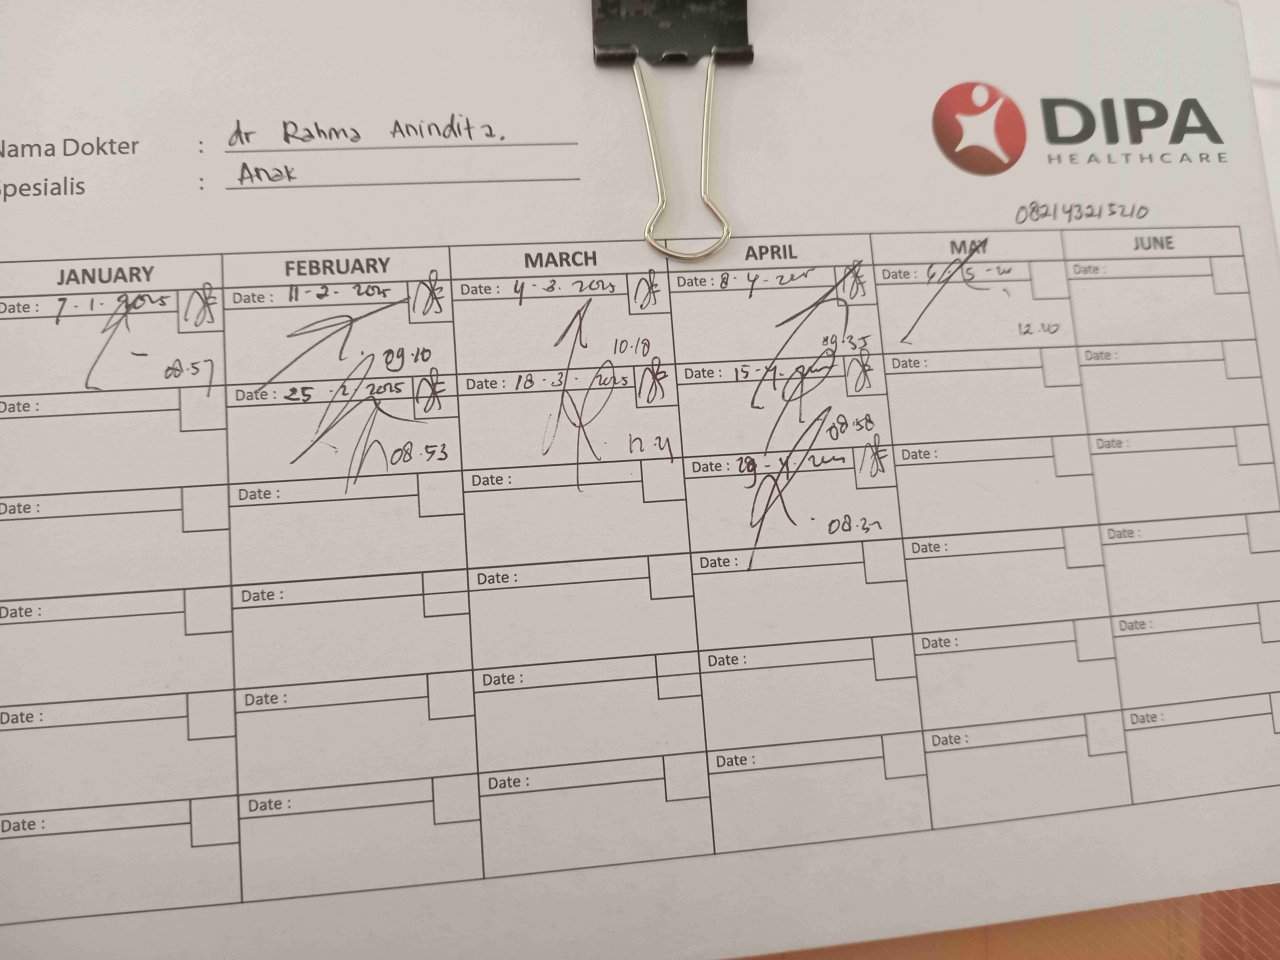 Nama Dokter : dr Rahma Anindita.
Spesialis : Anak
DIPA
HEALTHCARE
082143215210
JANUARY FEBRUARY MARCH APRIL MAY JUNE
Date : 7-1-2025 Date : 11-2-2025 Date : 4-3-2025 Date : 8-4-2025 Date : 6-5- Date :
08.57 09.10 10.18 09.35 12.40
Date : Date : 25-2-2025 Date : 18-3-2025 Date : 15-4- Date : Date :
08.53 08.58
Date : Date : Date : Date : 29-4-2025 Date : Date :
Date : Date : Date : Date : Date : Date :
Date : Date : Date : Date : Date : Date :
Date : Date : Date : Date : Date : Date :